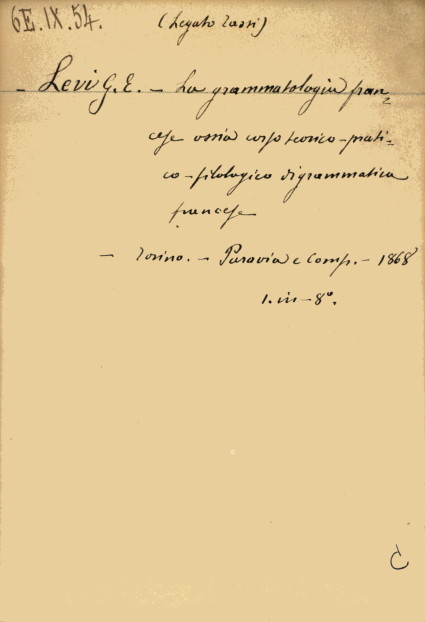 6E.IX.54.
(Legato Tassi)
- Levi G. E. - La grammatologia fran=
cese ossia corso teorico-prati=
co-filologico di grammatica
francese
- Torino. - Paravia e Comp. - 1868
1. in-8°.
C